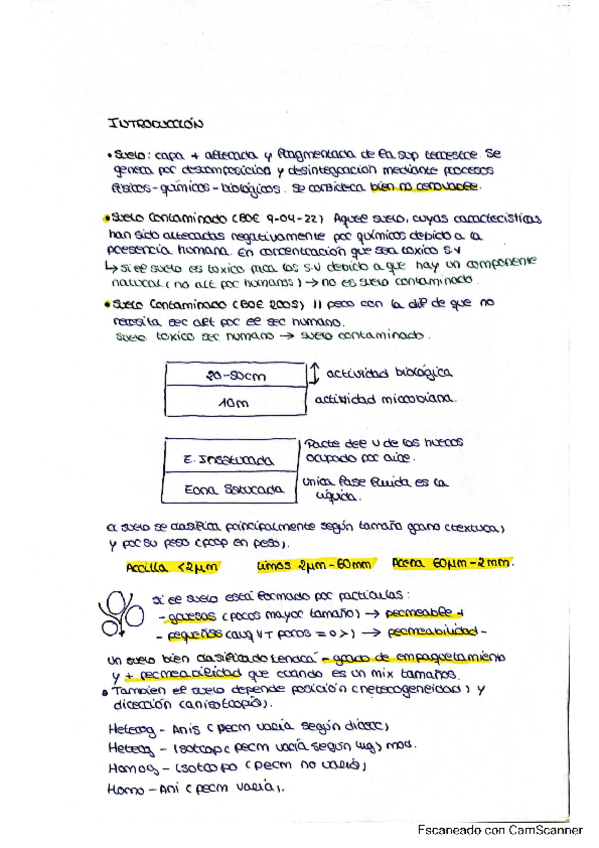 INTRODUCCIÓN
• Suelo: capa + alterada y fragmentada de la sup terrestre. Se
genera por descomposición y desintegración mediante procesos
físicos-químicos-biológicos. Se considera bien no renovable.
• Suelo Contaminado (BOE 9-04-22) Aquel suelo, cuyas características
han sido alteradas negativamente por químicos debido a la
presencia humana. En concentración que sea toxico S.V
↳ Si el suelo es toxico para los S.V debido a que hay un componente
natural (no alt por humanos) → no es suelo contaminado.
• Suelo Contaminado (BOE 2005) 11 pero con la dif de que no
necesita ser alt por el ser humano.
Suelo toxico ser humano → suelo contaminado.
20-50cm actividad biológica
10m actividad microbiana.
E. Insaturada Parte del V de los huecos
ocupado por aire.
Zona Saturada Unica fase fluida es la
líquida.
El suelo se clasifica principalmente según tamaño grano (textura)
y por su peso (prop en peso).
Arcilla <2μm Limos 2μm-60mm Arena 60μm-2mm.
Si el suelo está formado por partículas:
- gruesas (poros mayor tamaño) → permeable +
- pequeñas (aug VT poros = o >) → permeabilidad -
Un suelo bien clasificado tendrá - grado de empaquetamiento
y + permeabilidad que cuando es un mix tamaños.
• Tambien el suelo depende posición (heterogeneidad) y
dirección (anisotropía).
Heterog - Anis (perm varía según direc)
Heterog - Isotrop (perm varía según lug) mod.
Homog - Isotropo (perm no varía)
Homo - Ani (perm varía).
Escaneado con CamScanner